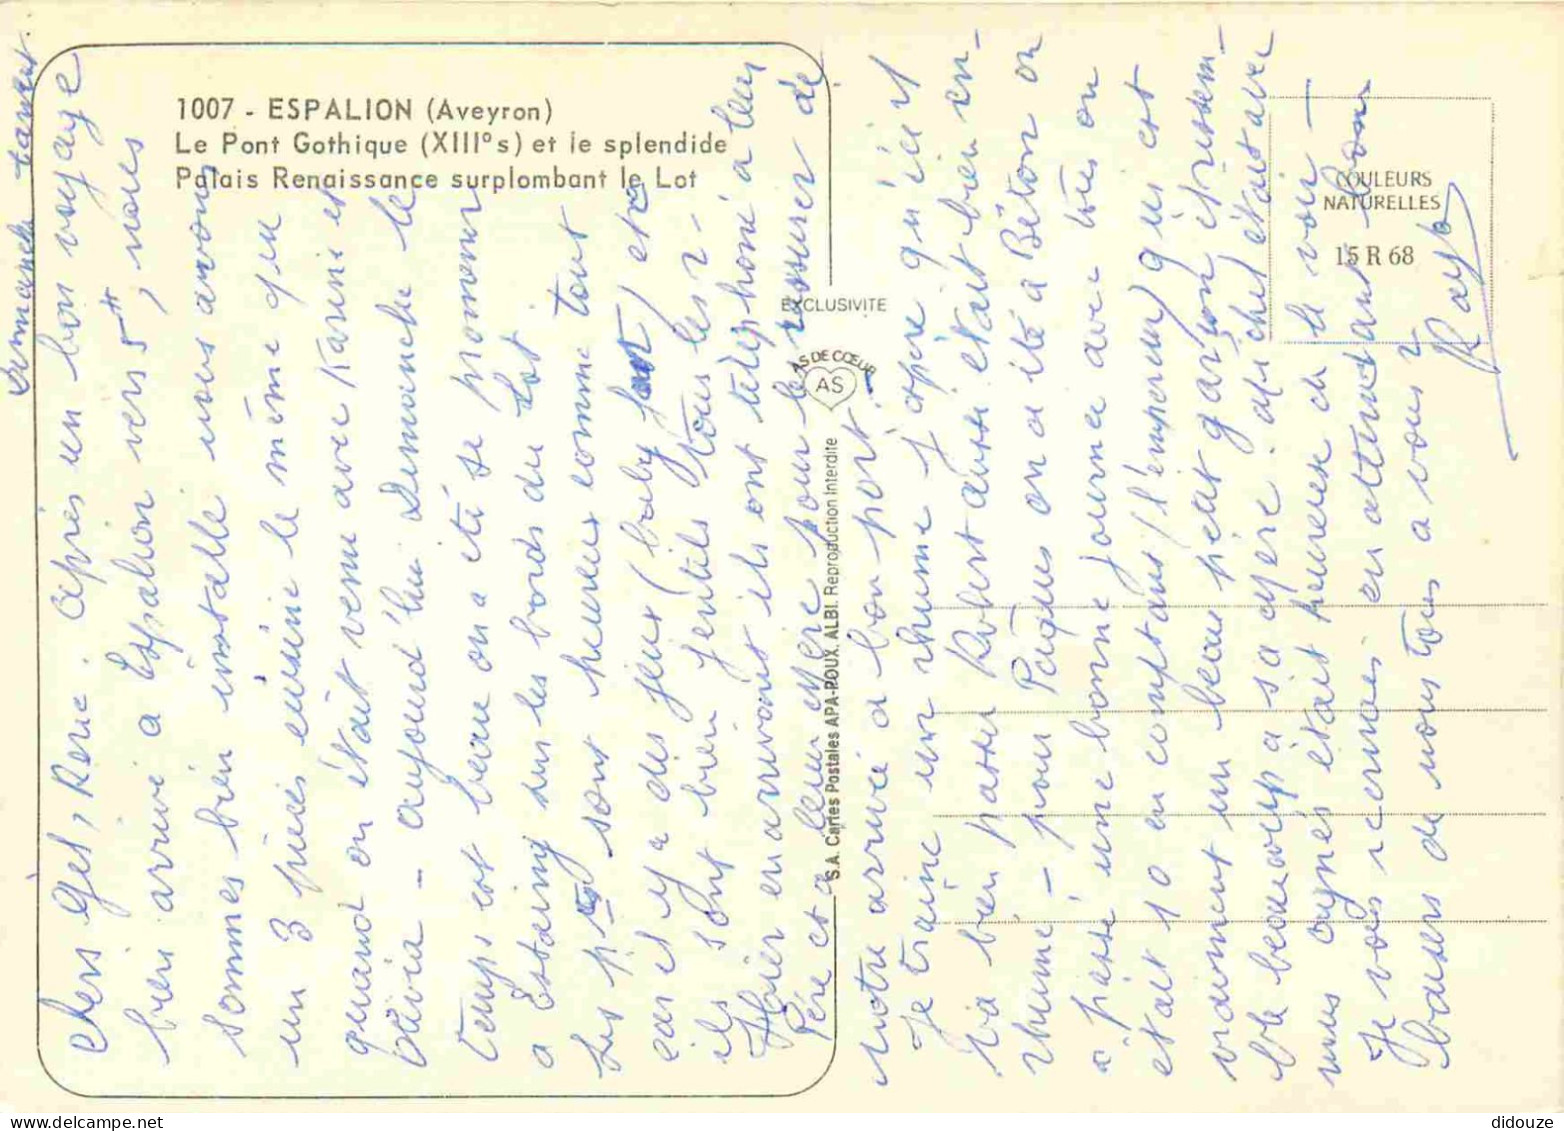 1007 - ESPALION (Aveyron)
Le Pont Gothique (XIII°s) et le splendide
Palais Renaissance surplombant le Lot
COULEURS
NATURELLES
15 R 68
EXCLUSIVITE
AS DE CŒUR
AS
S.A. Cartes Postales APA-POUX. ALBI. Reproduction Interdite
Dimanche
Chers Gef, René. Après un bon voyage
bien arrivé à Espalion vers 5 H, nous
sommes bien installé nous avons
un 3 pièces cuisine le même que
quand on était venu avec Karine et
Olivia - aujourd'hui Dimanche le
temps est beau on a été se promener
a Estaing sur les bords du Lot
les sont heureux comme tout
car il y a des jeux (baby foot) etc
ils sont bien gentils tous les 2 -
Hier en arrivant ils ont téléphoné à leur
Père et a leur Mère pour le rassurer de
notre arrivée a bon port -
Je traine un rhume j'espère qu'ici il
va bien passer Robert aussi était bien en-
rhumé - pour Pâques on a été à Béton on
a passé une bonne journée avec tous on
était 10 en comptant l'empereur qui est
vraiment un beau petit garçon et ressem-
ble beaucoup à sa mère. Michel était avec
nous Agnès était heureuse de le voir -
Je vous en attendant bons
baisers de nous tous a vous 2
didouze